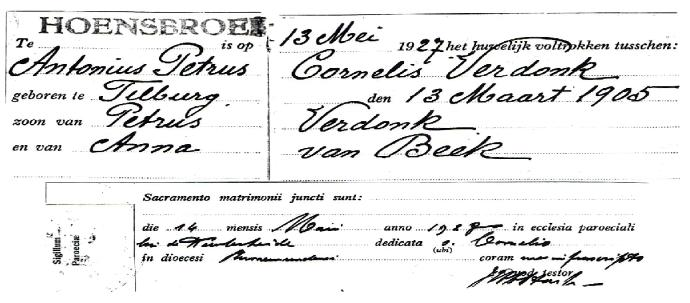 HOENSBROEK
Te is op 13 Mei 1927 het huwelijk voltrokken tusschen:
Antonius Petrus Cornelis Verdonk
geboren te Tilburg den 13 Maart 1905
zoon van Petrus Verdonk
en van Anna van Beek
Sacramento matrimonii juncti sunt:
die 14 mensis Maii anno 192 in ecclesia paroeciali
dedicata S. Cornelio
(ubi)
in dioecesi coram me infrascripto
quod testor
Sigillum
Paroeciae